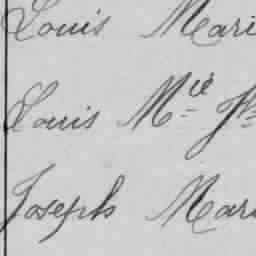 Louis Mari
Louis Mie Jh
Joseph Mari